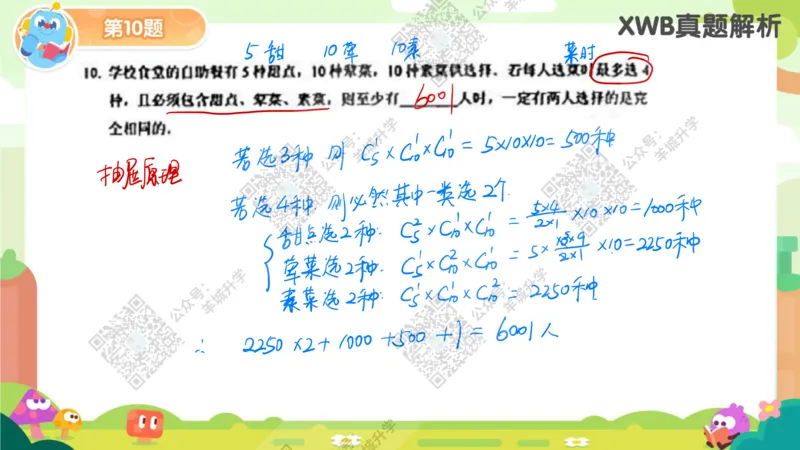 第10题
XWB真题解析
5甜 10荤 10素 菜时
10. 学校食堂的自助餐有5种甜点，10种荤菜，10种素菜供选择. 若每人选菜时最多选4
种，且必须包含甜点、荤菜、素菜，则至少有 6001 人时，一定有两人选择的是完
全相同的.
抽屉原理
若选3种 则 C₅¹×C₁₀¹×C₁₀¹=5×10×10=500种
若选4种，则必然其中一类选2个
甜点选2种: C₅²×C₁₀¹×C₁₀¹ = 5×4/2×1 ×10×10=1000种
荤菜选2种: C₅¹×C₁₀²×C₁₀¹ = 5× 10×9/2×1 ×10=2250种
素菜选2种: C₅¹×C₁₀¹×C₁₀² = 2250种
∴ 2250×2+1000+500+1=6001人
公众号：
羊城升学